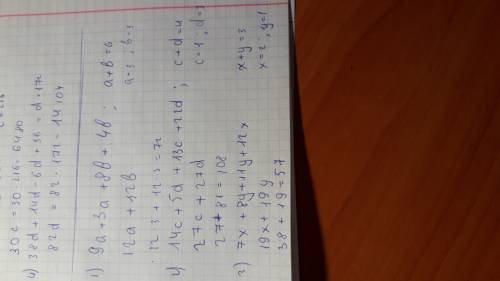 30c = 30·216 = 6480
4) 38d + 14d - 6d + 36 = d = 172
82d = 82 · 172 = 14104
1) 9a + 3a + 8b + 4b ; a + b = 6
12a + 12b a = 3 ; b = 3
12·3 + 12·3 = 72
2) 14c + 5d + 13c + 22d ; c + d = 4
27c + 27d c = 1 ; d = 3
27 + 81 = 108
3) 7x + 8y + 11y + 12x x + y = 3
19x + 19y x = 2 ; y = 1
38 + 19 = 57